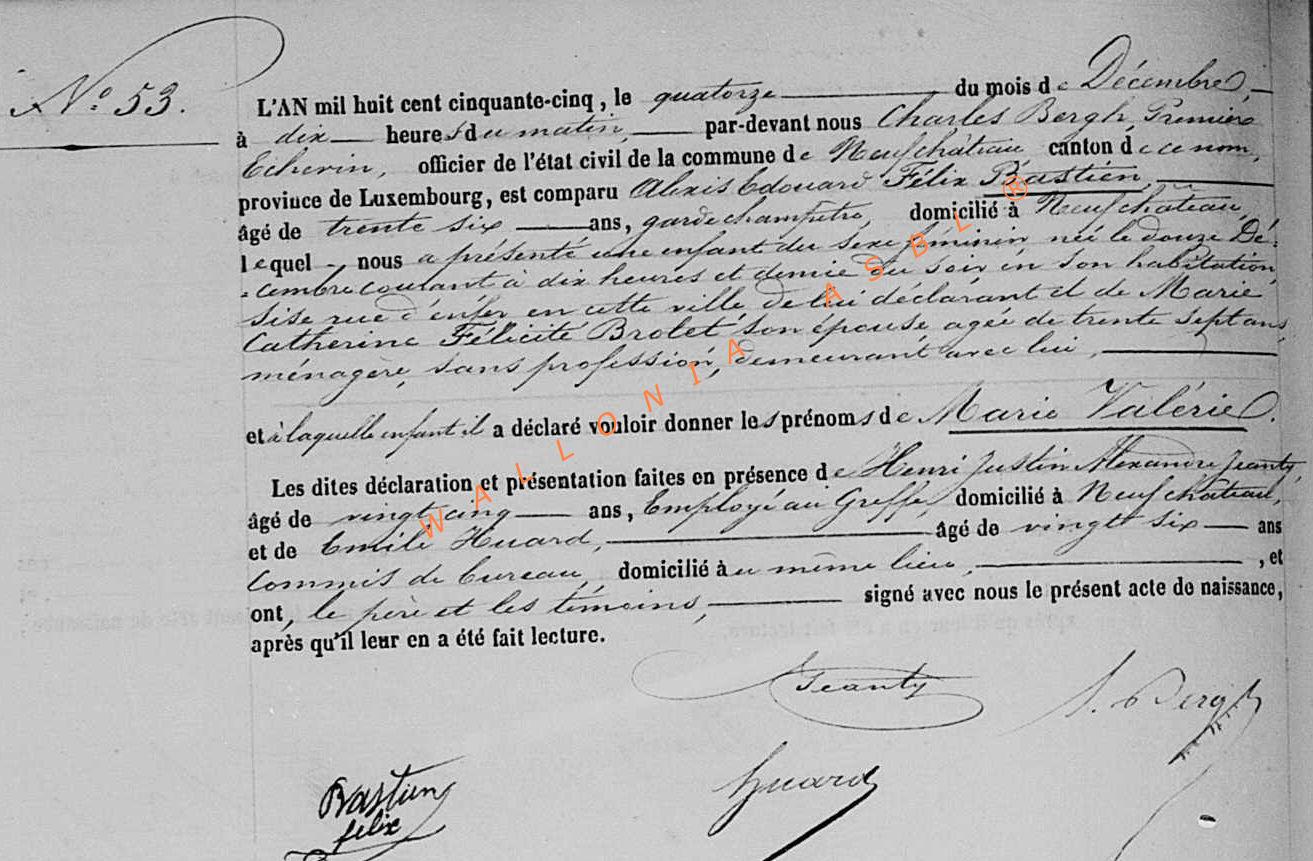 N.° 53.
L'AN mil huit cent cinquante-cinq, le quatorze du mois de Décembre,
à dix heures du matin, par-devant nous Charles Bergh, Premier
Echevin, officier de l'état civil de la commune de Neufchâteau canton de ce nom,
province de Luxembourg, est comparu Alexis Edouard Félix Bastien,
âgé de trente six ans, garde champêtre, domicilié à Neufchâteau,
lequel nous a présenté une enfant du sexe féminin née le douze Dé-
-cembre courant à dix heures et demie du soir en son habitation
sise rue d'enfer en cette ville, de lui déclarant et de Marie
Catherine Félicité Brolet, son épouse agée de trente sept ans,
ménagère, sans profession, demeurant avec lui,
et à laquelle enfant il a déclaré vouloir donner les prénoms de Marie Valérie.
Les dites déclaration et présentation faites en présence de Henri Justin Alexandre Jeanty
âgé de vingt cinq ans, Employé au Greffe, domicilié à Neufchâteau,
et de Emile Huard, âgé de vingt six ans
commis de bureau, domicilié au même lieu, , et
ont, le père et les témoins, signé avec nous le présent acte de naissance,
après qu'il leur en a été fait lecture.
Jeanty
Bergh
Huard
Bastien
félix
WALLONIA ASBL ®